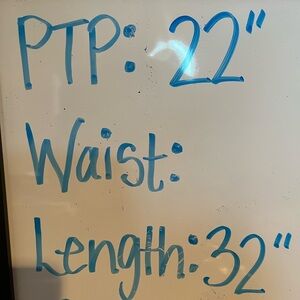 PTP: 22"
Waist:
Length: 32"